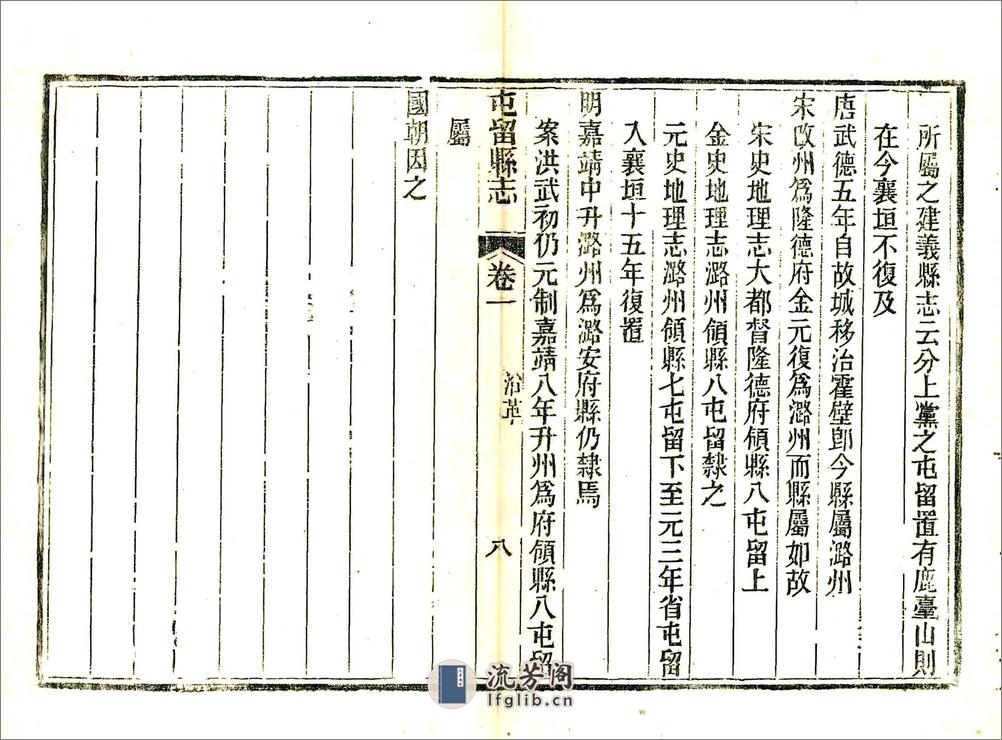 所屬之建義縣志云分上黨之屯留置有鹿臺山則
在今襄垣不復及
唐武德五年自故城移治霍壁卽今縣屬潞州
宋改州爲隆德府金元復爲潞州而縣屬如故
宋史地理志大都督隆德府領縣八屯留上
金史地理志潞州領縣八屯留隸之
元史地理志潞州領縣七屯留下至元三年省屯留
入襄垣十五年復置
明嘉靖中升潞州爲潞安府縣仍隸焉
案洪武初仍元制嘉靖八年升州爲府領縣八屯留
屯留縣志 卷一 沿革 八
屬
國朝因之
流芳阁
lfglib.cn